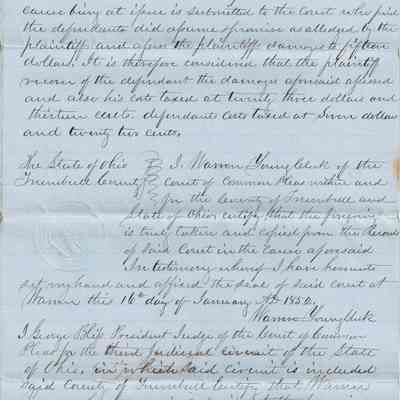 cause being at issue is submitted to the Court who find
the defendants did assume & promise as alledged by the
plaintiff and assess the plaintiffs damages to fifteen
dollars. It is therefore considered that the plaintiff
recover of the defendant the damages aforesaid assessed
and also his costs taxed at twenty three dollars and
thirteen cents. defendants costs taxed at seven dollars
and twenty two cents.
The State of Ohio I, Warren Young Clerk of the
Trumbull County Court of Common Pleas within and
for the County of Trumbull and
State of Ohio certify that the foregoing
is truly taken and copied from the Records
of said Court in the cause aforesaid
In testimony whereof I have hereunto
set my hand and affixed the seal of said court at
Warren this 16th day of January AD 1850.
Warren Young Clerk
I George Bliss President Judge of the Court of Common
Pleas for the third judicial circuit of the State
of Ohio, in which said circuit is included
said County of Trumbull Certify that Warren